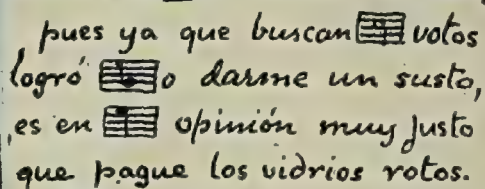 pues ya que buscan votos
logró o darme un susto,
es en opinión muy justo
que pague los vidrios rotos.